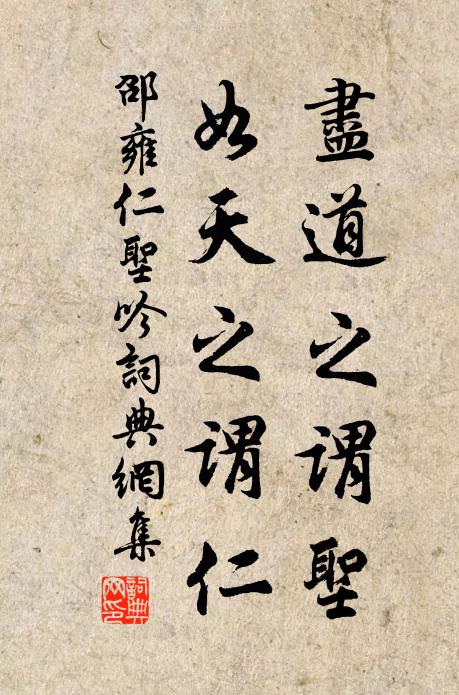 盡道之謂聖
如天之謂仁
邵雍仁聖吟詞典網集
詞典網印